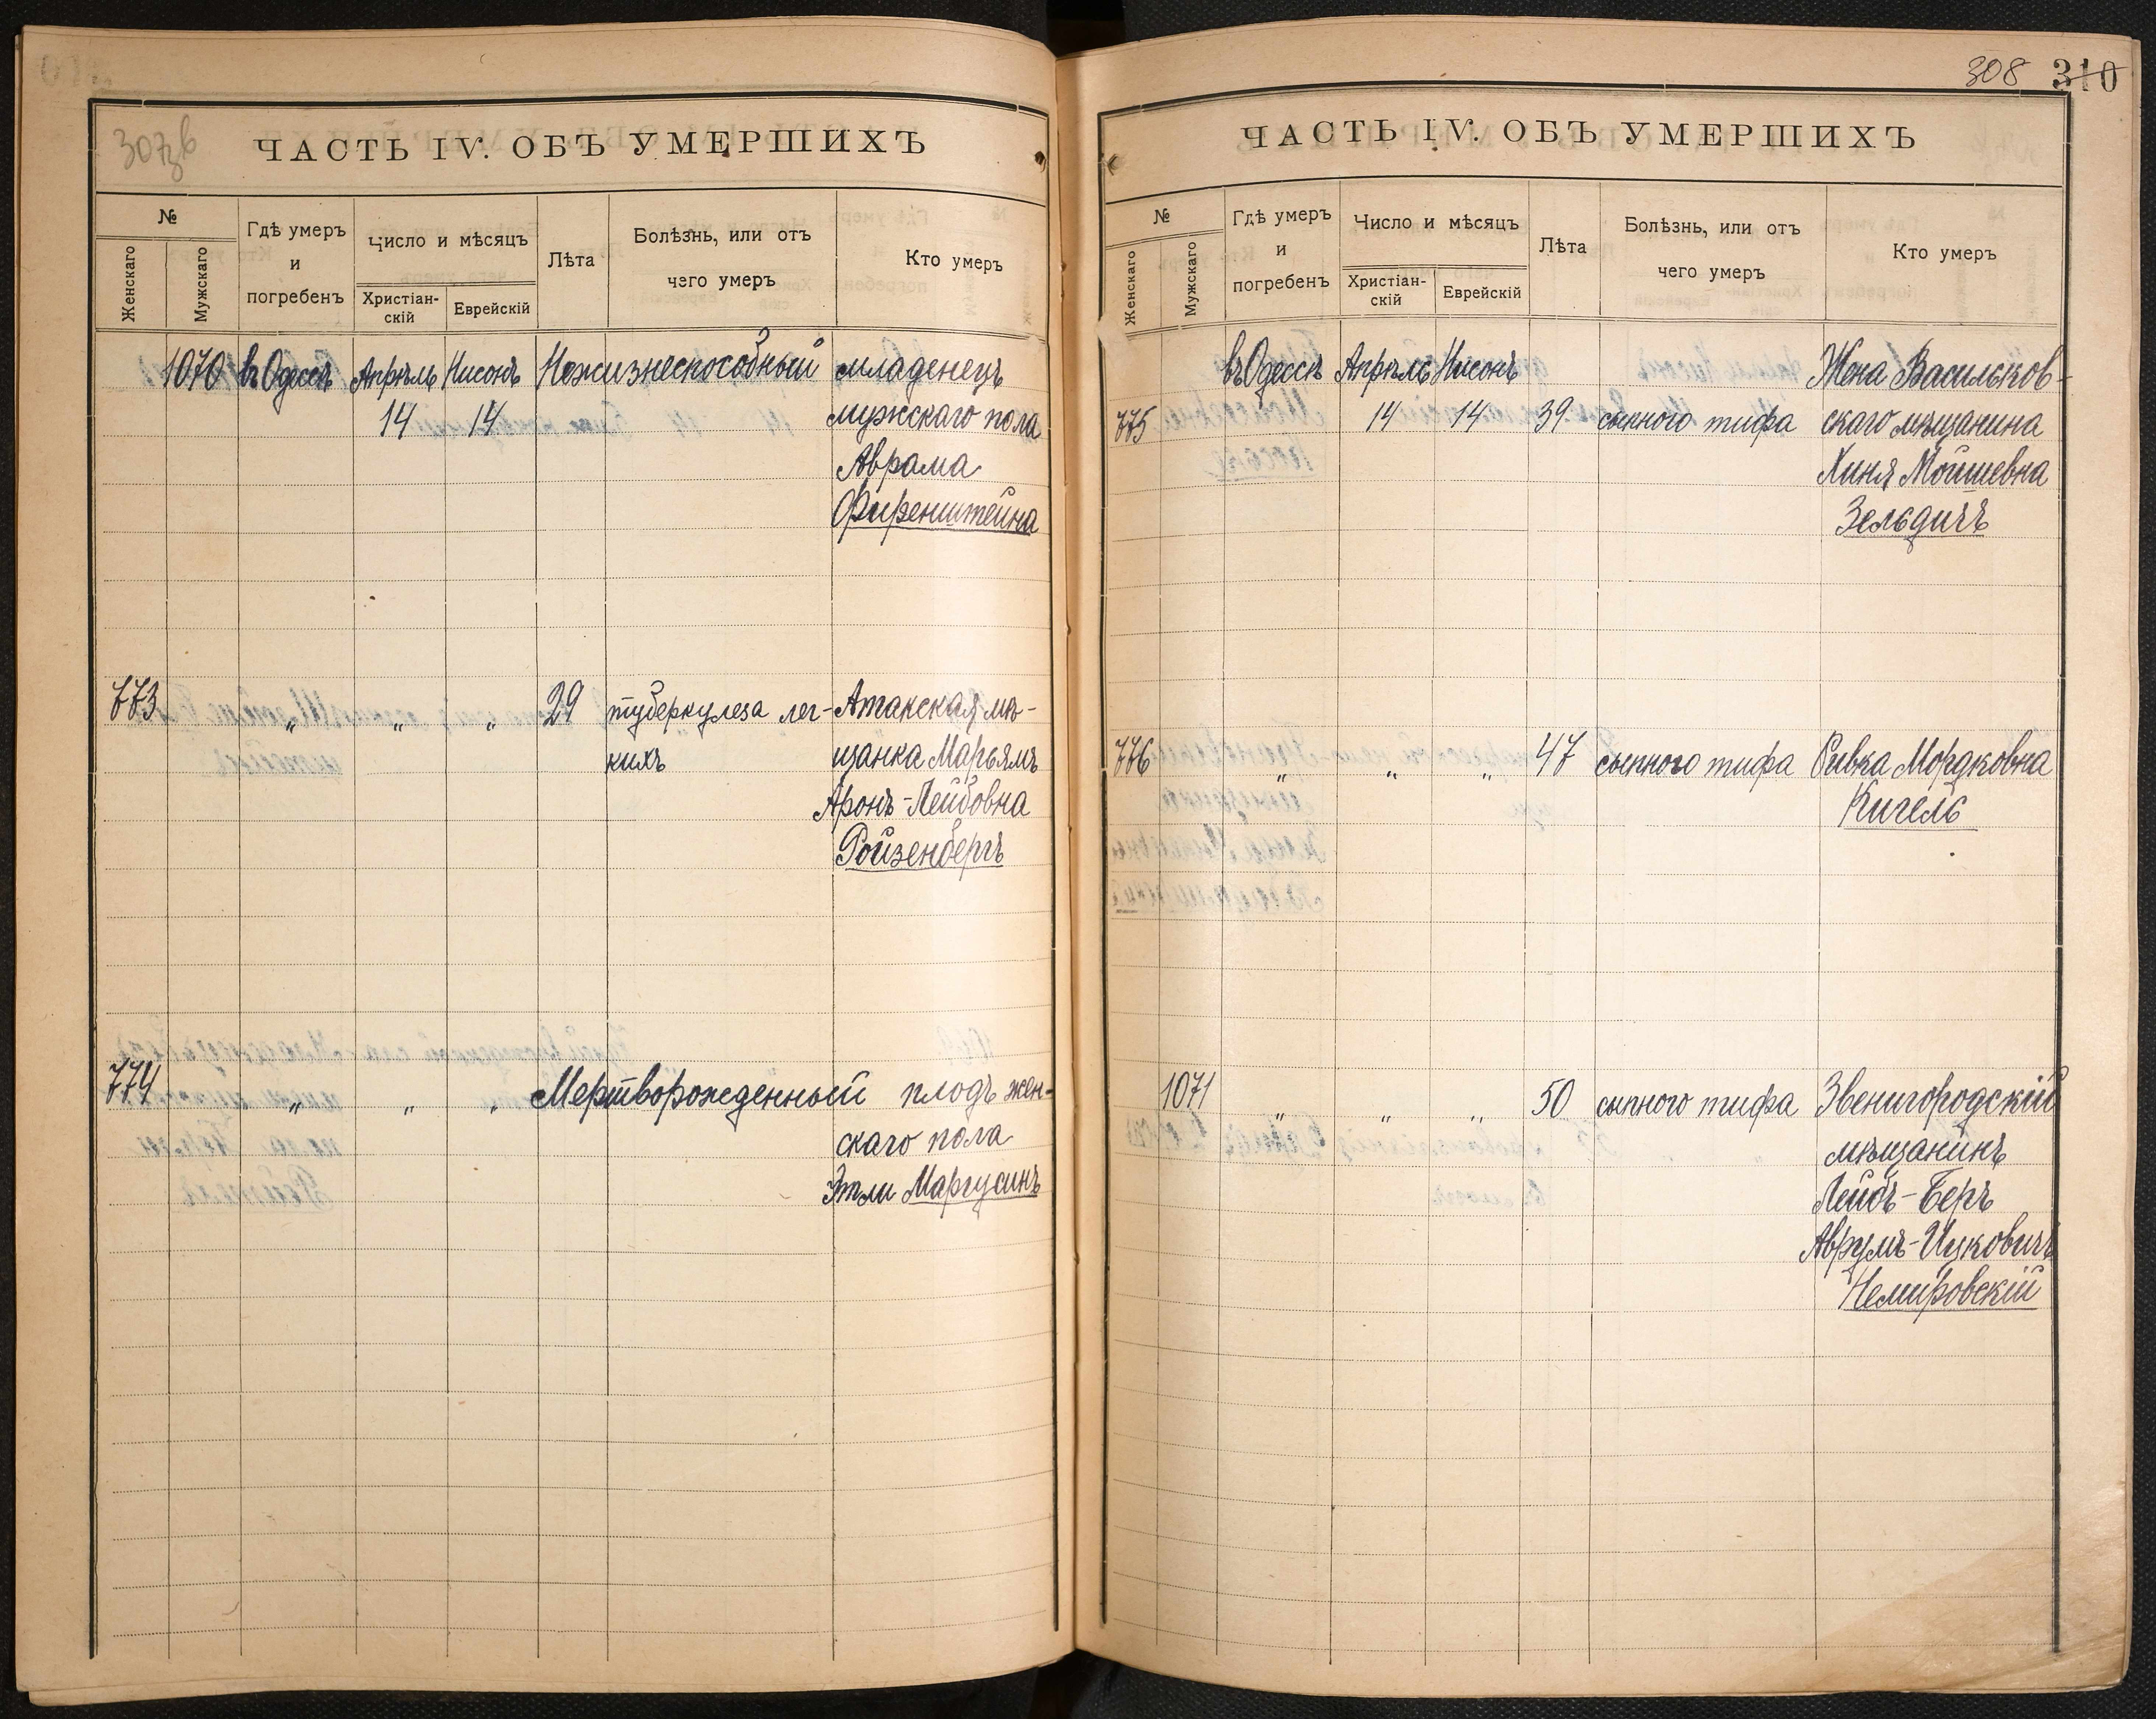 307зв
ЧАСТЬ IV. ОБЪ УМЕРШИХЪ
№
Женскаго
Мужскаго
Гдѣ умеръ
и
погребенъ
Число и мѣсяцъ
Христіан-
скій
Еврейскій
Лѣта
Болѣзнь, или отъ
чего умеръ
Кто умеръ
1070 въ Одессѣ Апрѣль Нисонъ Нежизнеспособный младенецъ
14 14 мужскаго пола
Аврама
Фиренштейна
773 „ „ „ 29 туберкулеза лег- Атакская мѣ-
кихъ щанка Марьямъ
Аронъ-Лейбовна
Ройзенбергъ
774 „ „ „ Мертворожденный плодъ жен-
скаго пола
Этли Маргусинъ
308 310
ЧАСТЬ IV. ОБЪ УМЕРШИХЪ
№
Женскаго
Мужскаго
Гдѣ умеръ
и
погребенъ
Число и мѣсяцъ
Христіан-
скій
Еврейскій
Лѣта
Болѣзнь, или отъ
чего умеръ
Кто умеръ
въ Одессѣ Апрѣль Нисонъ Жена Васильков-
775 14 14 39 сыпного тифа скаго мѣщанина
Хиня Мойшевна
Зельдичъ
776 „ „ „ 47 сыпного тифа Ривка Мордковна
Кигель
1071 „ „ „ 50 сыпного тифа Звенигородскій
мѣщанинъ
Лейбъ-Беръ
Аврумъ-Ицковичъ
Немировскій